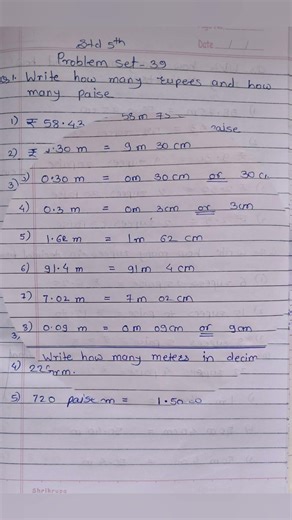 Std 5th
Date / /
Problem Set - 39
Q.1. Write how many rupees and how
many paise
1) ₹ 58.43
aise
2) ₹ .30 m = 9 m 30 cm
3) 3) 0.30 m = 0m 30 cm or 30 c
4) 0.3 m = 0m 3cm or 3cm
5) 1.62 m = 1m 62 cm
6) 91.4 m = 91m 4 cm
7) 7.02 m = 7 m 02 cm
3, 8) 0.09 m = 0m 09cm or 9cm
Write how many meters in decim
4)
5) 720 paise m = 1.50
Shrikrupa